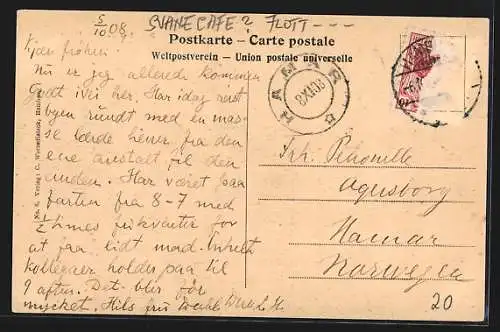 5/10 08.
SVANECAFE? FLOTT - - -
Postkarte - Carte postale
Weltpostverein - Union postale universelle
Kjære frøken!
Nu er jeg allerede kommen
godt ivei her. Har idag rast
byen rundt med en mas-
se lærde herrer fra den
ene anstalt til den
anden. Har været paa
farten fra 8-7 med
1/2 times frikvarter for
at faa lidt mad.
kollegaer holder paa til
9 aften. Det blir for
meget. Hils fru
HAMAR
8 XI 08
Frk.
Hamar
Norwegen
20